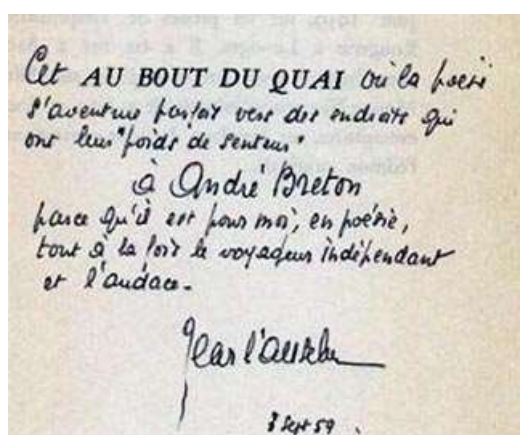 Cet AU BOUT DU QUAI où la poésie
s'aventure parfois vers des endroits qui
ont leur "poids de senteur"
à André Breton
parce qu'il est pour moi, en poésie,
tout à la fois le voyageur indépendant
et l'audace.
Jean l'anselme
8 Sept 59.